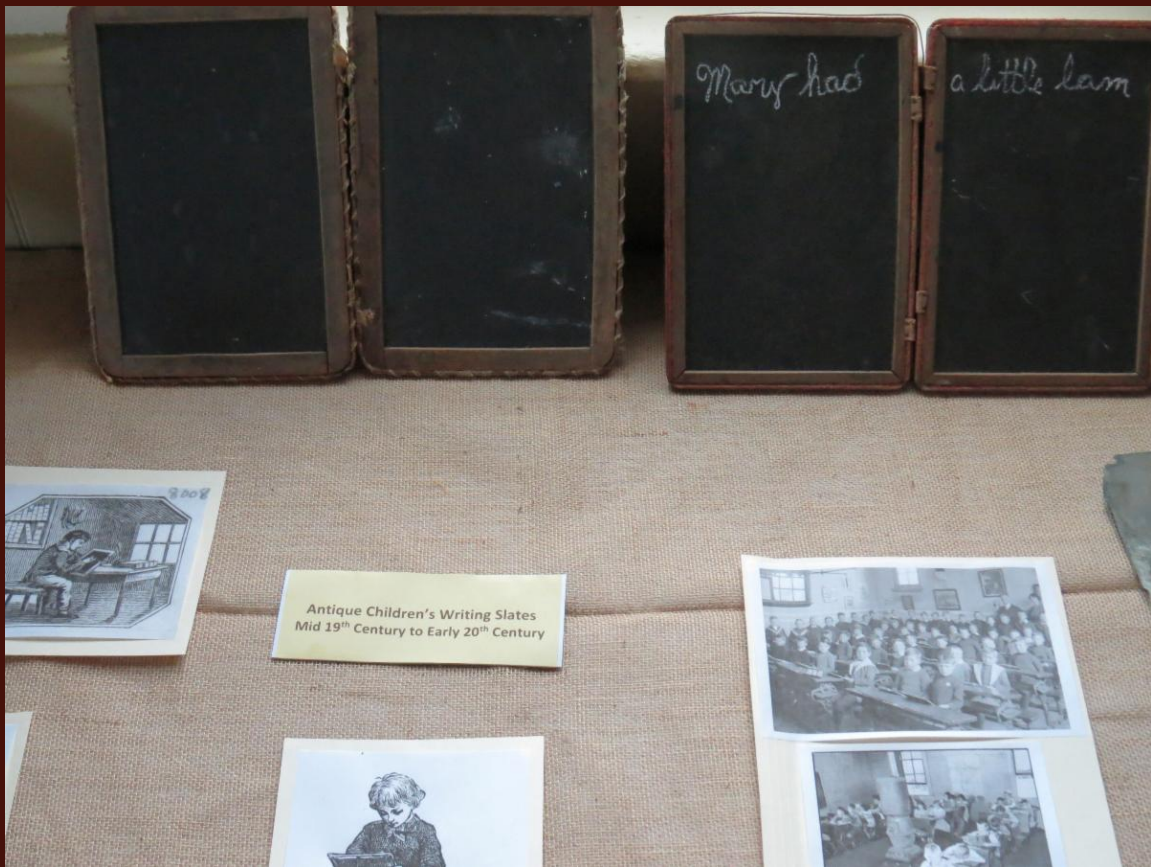 Mary had
a little lam
8008
Antique Children's Writing Slates
Mid 19th Century to Early 20th Century